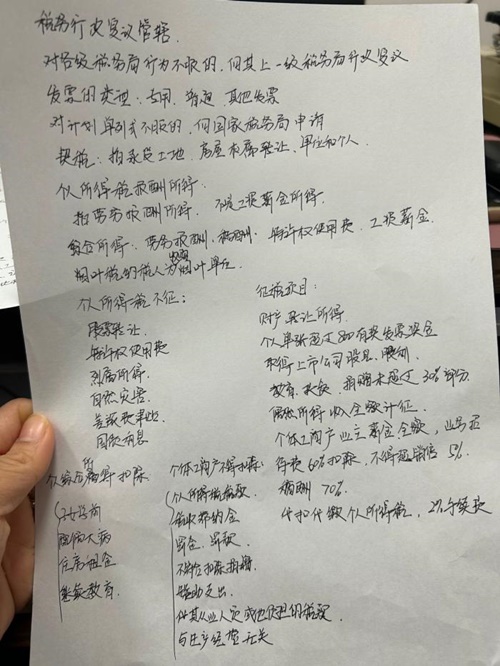 税务行政复议管辖.
对各级税务局行为不服的,向其上一级税务局行政复议
发票的类型:专用,普通,其他发票
对计划单列市不服的,向国家税务局申请
契税:指承受土地,房屋权属转让,单位和个人
个人所得税报酬所得:
指劳务报酬所得,不是工资薪金所得.
综合所得:劳务报酬,稿酬,特许权使用费,工资薪金.
烟叶税纳税人为收购烟叶单位.
个人所得税不征:
股票转让.
特许权使用费
烈属所得.
自然灾害
国债利息
征税项目:
财产转让所得
个单张超过800有奖发票奖金
取得上市公司股息,
教育,扶贫,捐赠未超过30%部分
偶然所得 收入全额计征.
个体工商户业主薪金全额,业务招
待费60%扣除,不得超销售5‰
稿酬 70%
代扣代缴个人所得税,2%手续费
个人综合所得扣除
子女学前
大病
住房租金
继续教育.
个体工商户不得扣除:
个人所得税税款
滞纳金
罚金,罚款
不符合扣除捐赠
赞助支出
代其从业人员或他人负担的税款
与生产经营无关